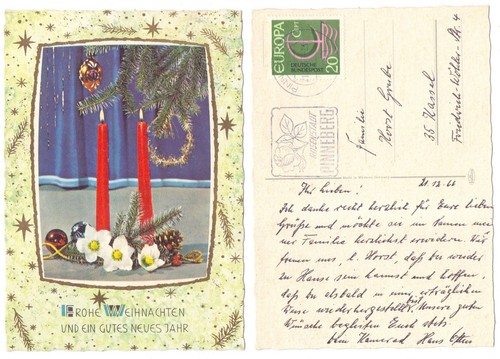 FROHE WEIHNACHTEN
UND EIN GUTES NEUES JAHR
EUROPA
CEPT
DEUTSCHE
BUNDESPOST
20
PINNEBERG
Familie
Horst Grube
35 Kassel
Friedrich-Wöhler-Str. 4
Ihr Lieben!
21.12.66
Ich danke recht herzlich für Eure lieben
Grüße und möchte sie im Namen mei-
ner Familie herzlichst erwidern. Wir
freuen uns, l. Horst, daß du wieder
zu Hause sein kannst und hoffen,
daß du alsbald in einer erträglichen
Weise wiederhergestellt bist. Unsere guten
Wünsche begleiten Euch stets
Dein Kamerad Hans